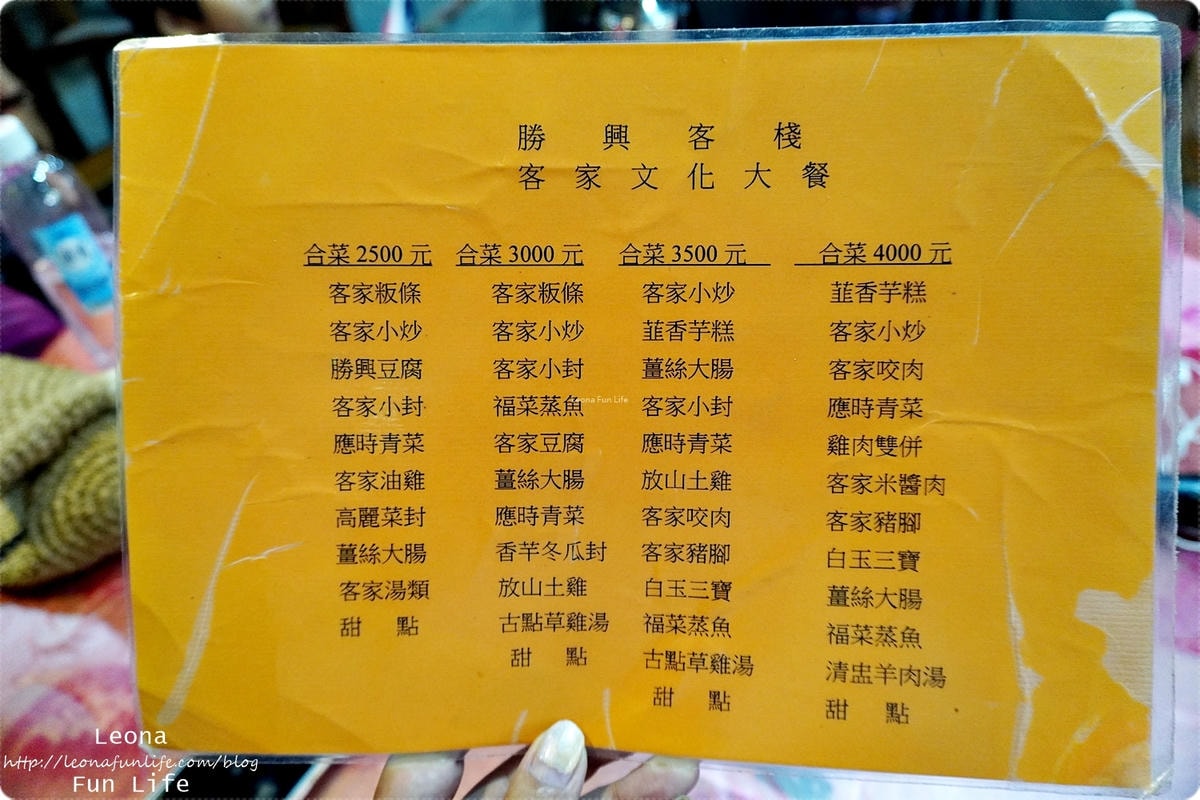 勝興客棧
客家文化大餐
合菜2500元
客家粄條
客家小炒
勝興豆腐
客家小封
應時青菜
客家油雞
高麗菜封
薑絲大腸
客家湯類
甜 點
合菜3000元
客家粄條
客家小炒
客家小封
福菜蒸魚
客家豆腐
薑絲大腸
應時青菜
香芋冬瓜封
放山土雞
古點草雞湯
甜 點
合菜3500元
客家小炒
韮香芋糕
薑絲大腸
客家小封
應時青菜
放山土雞
客家咬肉
客家豬腳
白玉三寶
福菜蒸魚
古點草雞湯
甜 點
合菜4000元
韮香芋糕
客家小炒
客家咬肉
應時青菜
雞肉雙併
客家米醬肉
客家豬腳
白玉三寶
薑絲大腸
福菜蒸魚
清盅羊肉湯
甜 點
Leona Fun Life
Leona
http://leonafunlife.com/blog
Fun Life